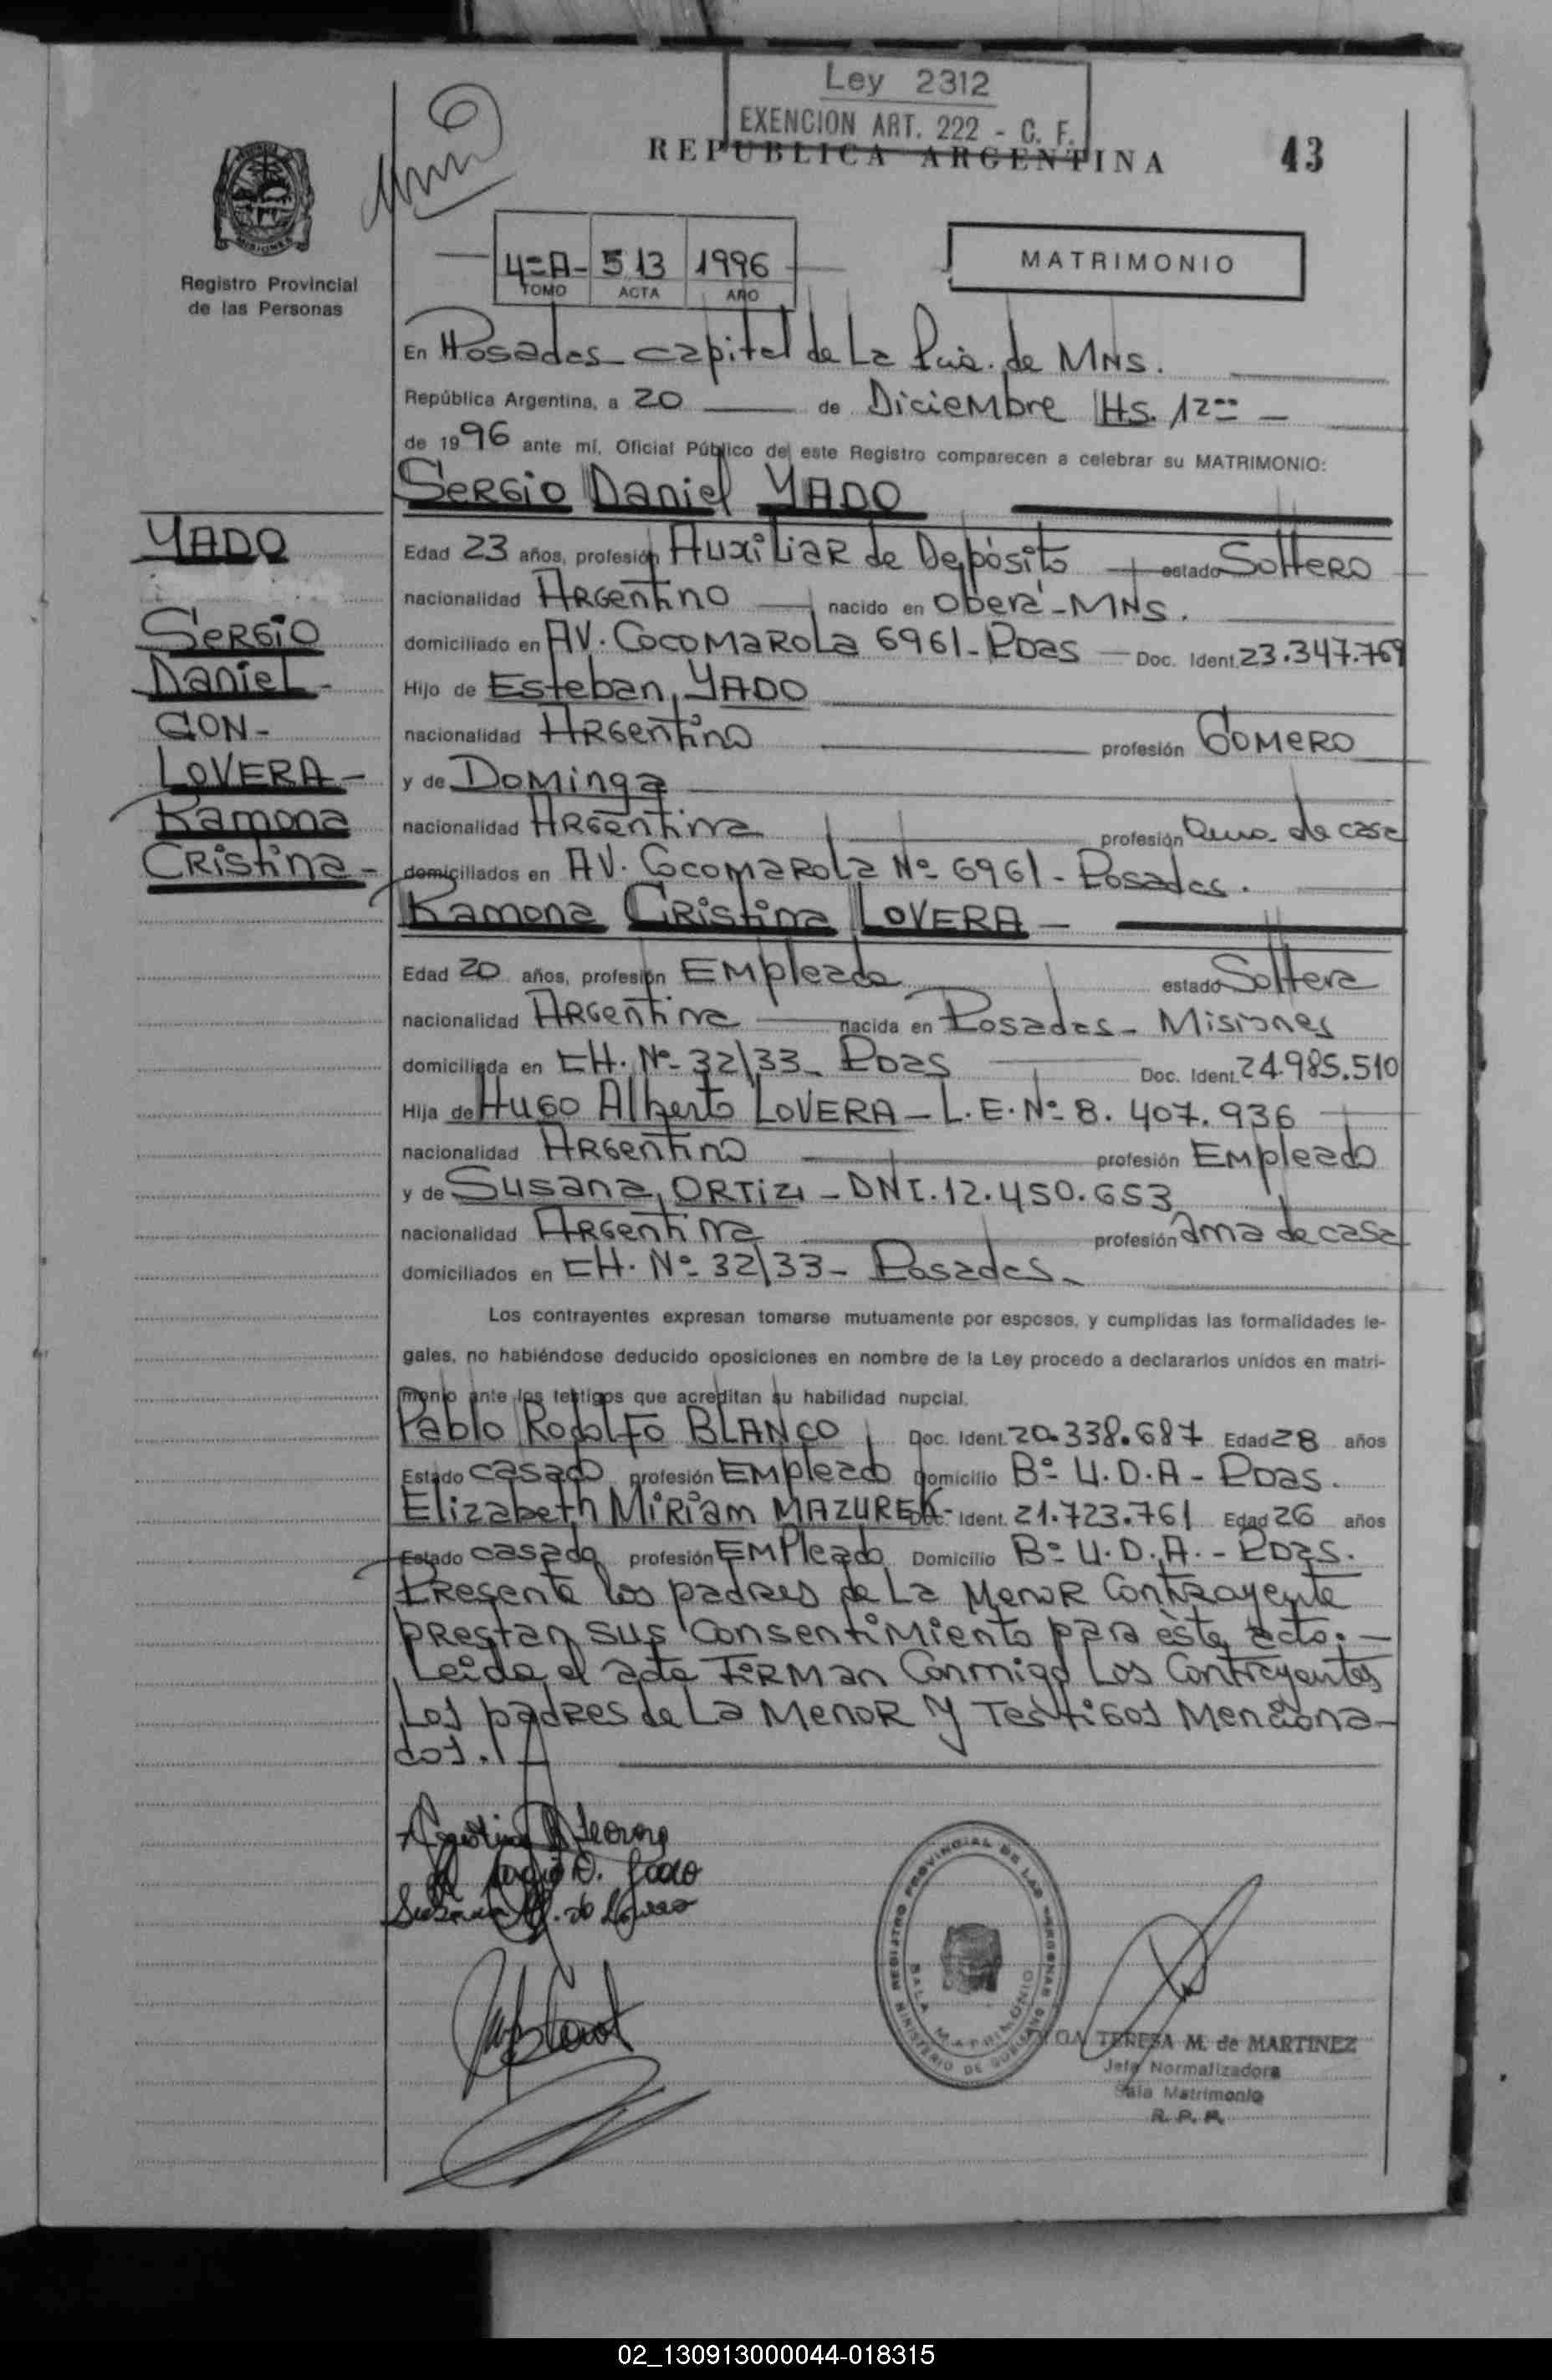 Ley 2312
EXENCION ART. 222 - C. F.
REPUBLICA ARGENTINA
43
Registro Provincial
de las Personas
4=A- 513 1996
TOMO ACTA AÑO
MATRIMONIO
En Posadas capital de La Pcia. de MNS.
República Argentina, a 20 de Diciembre Hs. 12=
de 1996 ante mí, Oficial Público de este Registro comparecen a celebrar su MATRIMONIO:
Sergio Daniel YADO
YADO
Sergio
Daniel-
CON-
LOVERA-
Ramona
Cristina-
Edad 23 años, profesión Auxiliar de Depósito estado Soltero
nacionalidad Argentino nacido en Oberá-MNS.
domiciliado en AV. Cocomarola 6961-Pdas Doc. Ident. 23.347.769
Hijo de Esteban, YADO
nacionalidad Argentino profesión Gomero
y de Dominga
nacionalidad Argentina profesión Ama de casa
domiciliados en AV. Cocomarola Nº 6961-Posadas.
Ramona Cristina LOVERA-
Edad 20 años, profesión Empleada estado Soltera
nacionalidad Argentina nacida en Posadas- Misiones
domiciliada en CH. Nº 32/33- Pdas Doc. Ident. 24.985.510
Hija de Hugo Alberto LOVERA-L.E. Nº 8.407.936
nacionalidad Argentino profesión Empleado
y de Susana, ORTIZ-DNI. 12.450.653
nacionalidad Argentina profesión Ama de casa
domiciliados en CH. Nº 32/33- Posadas-
Los contrayentes expresan tomarse mutuamente por esposos, y cumplidas las formalidades le-
gales, no habiéndose deducido oposiciones en nombre de la Ley procedo a declararlos unidos en matri-
monio ante los testigos que acreditan su habilidad nupcial.
Pablo Rodolfo BLANCO Doc. Ident. 20.338.687 Edad 28 años
Estado casado profesión Empleado Domicilio Bº U.D.A- Pdas.
Elizabeth Miriam MAZUREK- Doc. Ident. 21.723.761 Edad 26 años
Estado casada profesión Empleada Domicilio Bº U.D.A.- Pdas.
Presente los padres de La Menor Contrayente
prestan sus consentimiento para èste acto.-
Leida el acta Firman Conmigo Los Contrayentes
Los padres de La Menor y Testigos Menciona-
dos.
REGISTRO PROVINCIAL DE LAS PERSONAS
SALA MATRIMONIO
MINISTERIO DE GOBIERNO
TERESA M. de MARTINEZ
Jefa Normalizadora
Sala Matrimonio
R. P. P.
02_130913000044-018315